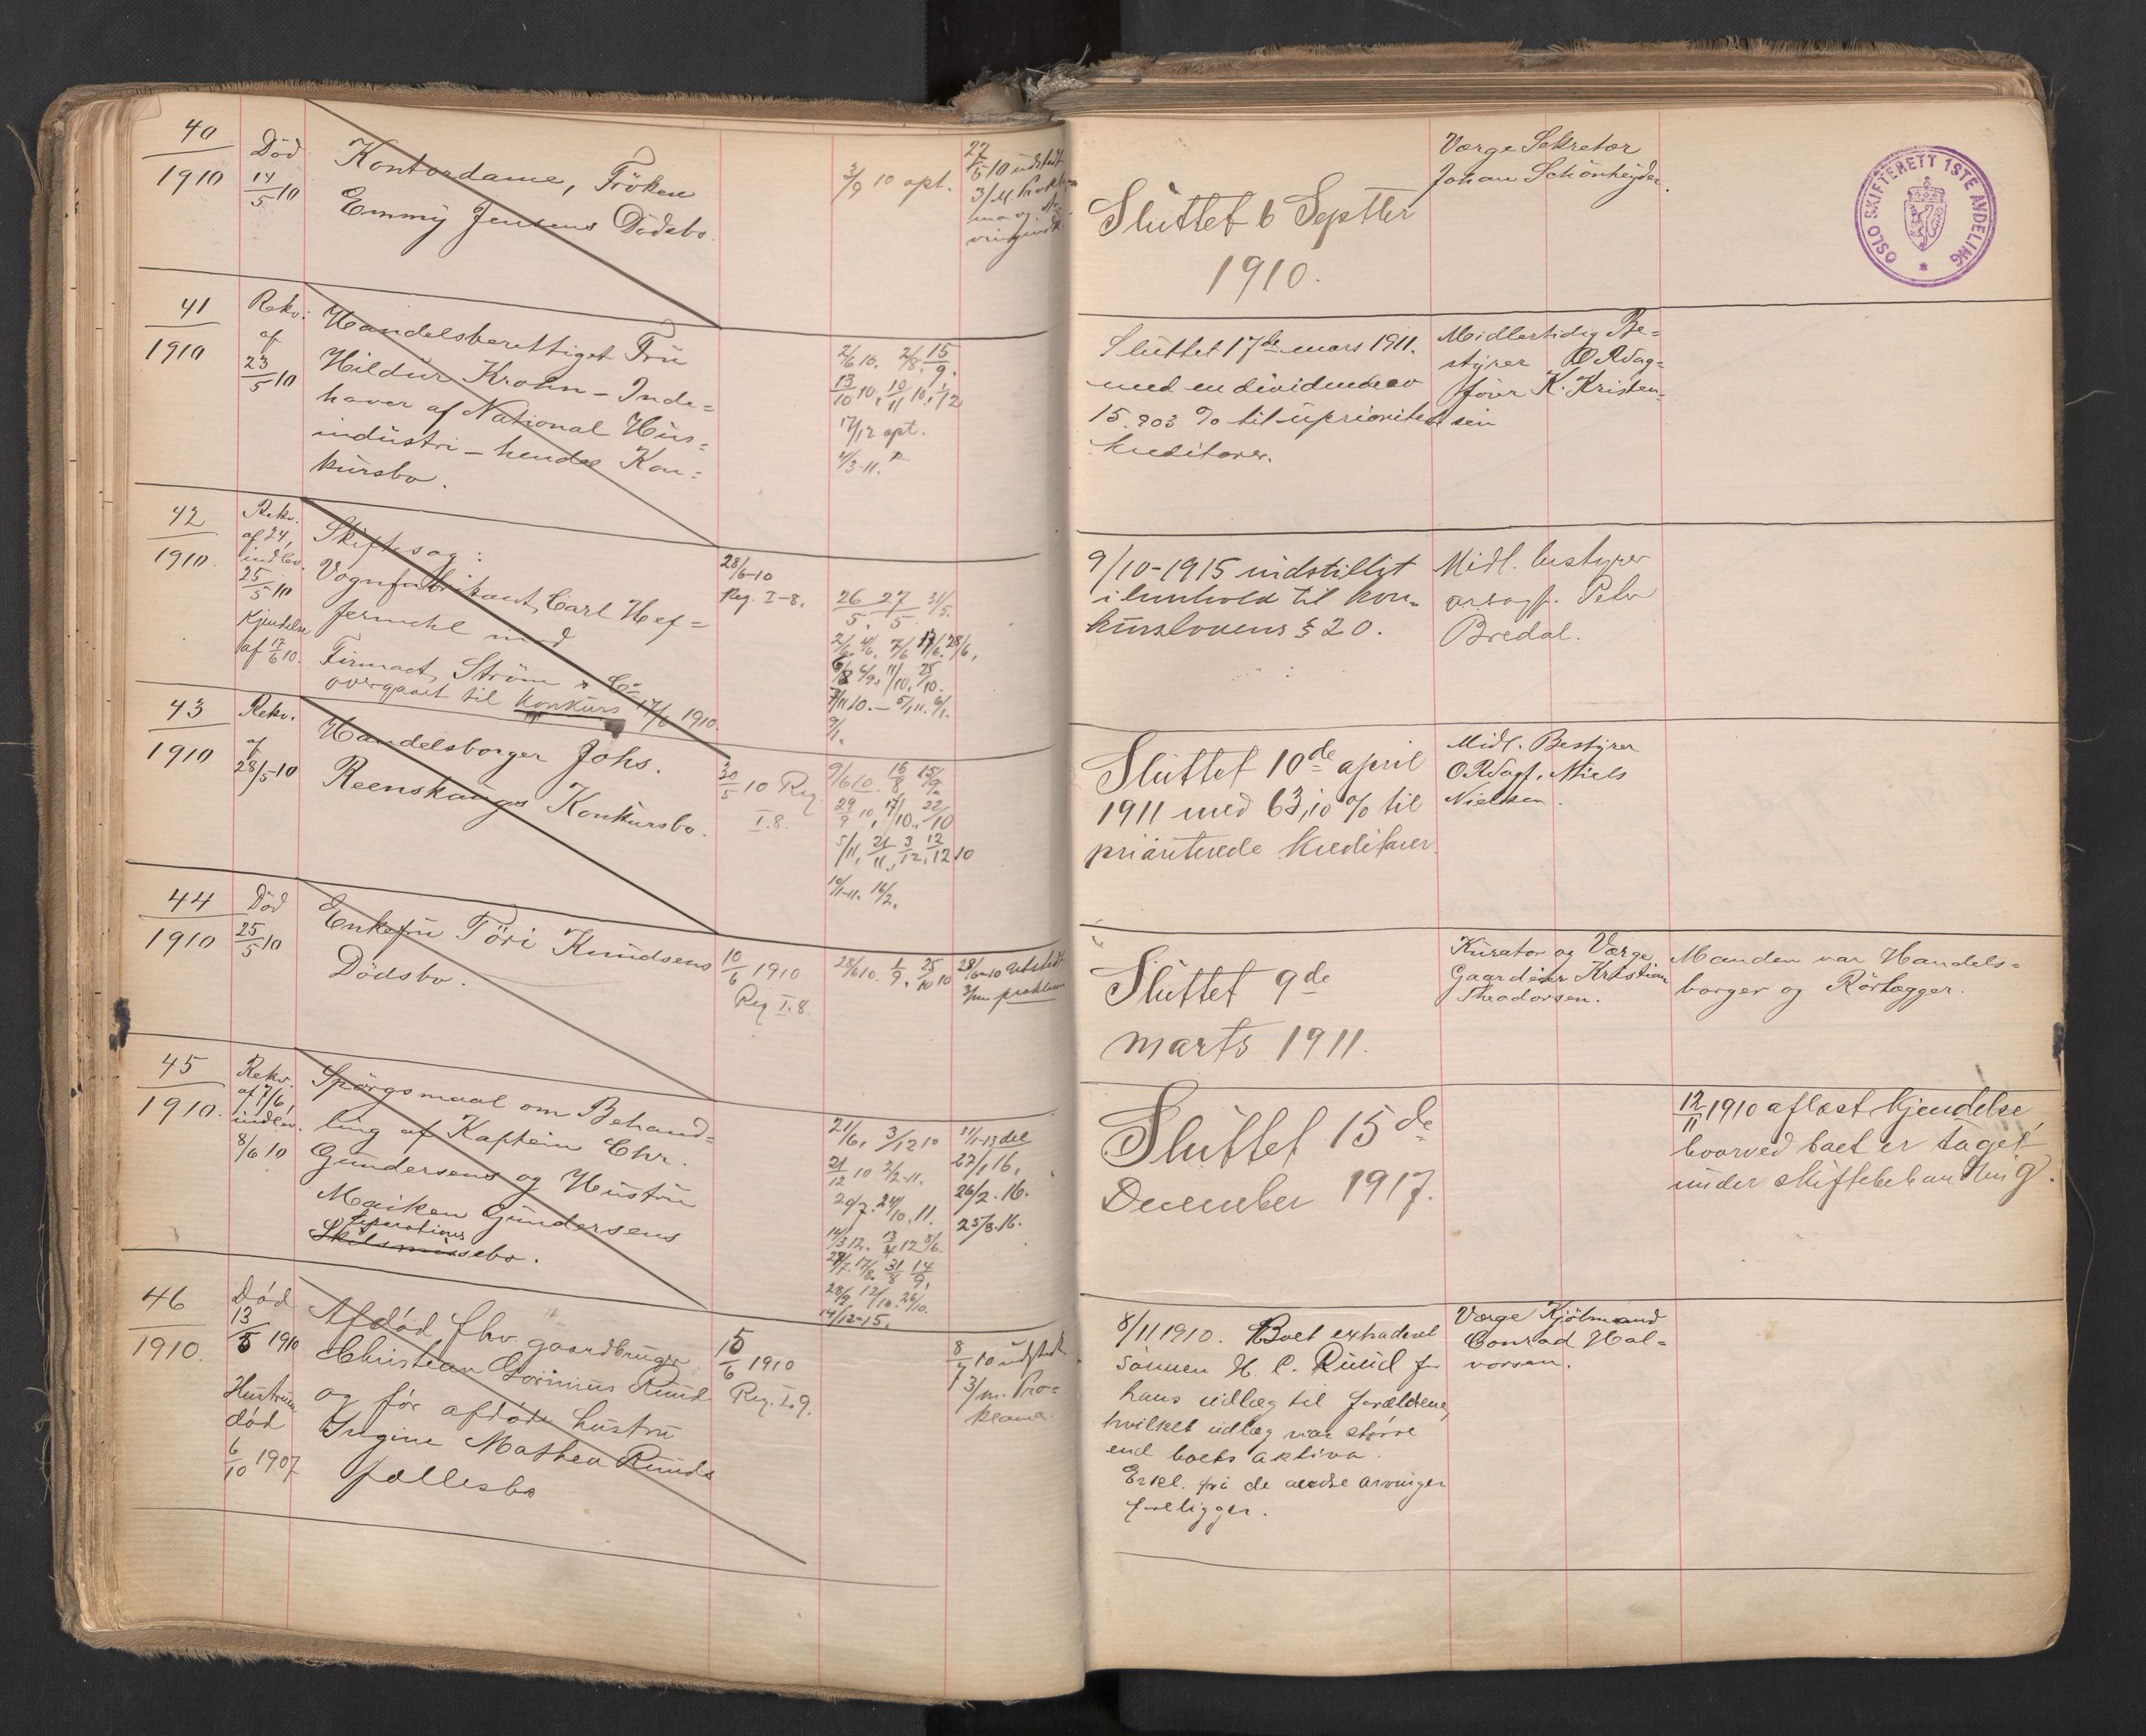 40
1910
Död
14/5 10
Kontordame, Fröken
Emmy Jensens Dödsbo
3/9 10 opt.
27/5 10 udstedt
3/M. Prokla
ma og
Sluttet 6 Septbr
1910.
Værge Sekretær
Johan Schönheyder.
OSLO SKIFTERETT 1STE AVDELING
41
1910
Rekv:
af
23/5 10
Handelsberettiget Fru
Hildur Krohn – Inde=
haver af National Hus=
industri – hendes Kon=
kursbo.
2/6 10. 2/8. 15/9.
13/10 10, 10/11 10, 1/12
17/12 opt.
4/3-11.
Sluttet 17de mars 1911.
med en dividende av
15.203 % til uprioritert
kreditorer.
Midlertidig Be=
styrer ORsag=
fører K. Kristen=
sen
42
1910.
Rekv.
af 24,
indlev.
25/5 10
Kjendelse
af 17/6 10.
Skiftesag:
Vognfabrikant, Carl Hef=
fermehl med
Firmaet, Ström & Co
overgaaet til Konkurs 17/6 1910.
28/6-10
Reg. I-8.
26/5. 27/5. 31/5.
2/6. 4/6. 7/6 17/6. 28/6,
11/10. 25/10.
7/11 10. – 5/1 11. 6/1.
9/1.
9/10-1915 indstillet
i henhold til kon=
kurslovens § 20.
Midl. bestyrer
orsagf. Peter
Bredal.
43
1910
Rekv.
af
28/5-10
Handelsborger Johs.
Reenskaugs Konkursbo.
30/5 10 Reg
I.8.
9/6 10. 16/8 15/9.
29/9 10, 17/10. 22/10
5/11, 21/11, 3/12, 12/12 10
10/1-11. 16/2.
Sluttet 10de april
1911 med 63,10 % til
prioriterede kreditorer.
Midl. Bestyrer
ORsagf. Niels
Nielsen.
44
1910
Död
25/5 10
Enkefru Töri Knudsens
Dödsbo.
10/6 1910
Reg I.8.
28/6 10. 1/9. 25/10 10
28/6-10 Utstedt
3/mn proklama
Sluttet 9de
marts 1911.
Kurator og Værge
Gaardeier Kristian
Theodorsen.
Manden var Handels=
borger og Rörlægger.
45
1910.
Rekv.
af 7/6,
indlev.
8/6 10
Spörgsmaal om Behand=
ling af Kaptein Chr.
Gundersens og Hustru
Maiken Gundersens
Separations
Skilsmissebo.
21/6, 3/12 10
21/12 10 2/2-11.
24/10, 11.
14/3 12. 13/4 12 8/6.
29/7. 17/8. 31/8 14/9,
28/9 12/10. 26/10.
14/12-15.
31/1-13 del
27/1 16,
26/2. 16.
25/3. 16.
Sluttet 15de
December 1917.
12/11 1910 aflæst kjendelse
hvorved boet er taget
under skiftebehandling.
46
1910.
Död
13/5 1910
Hustruen
död
6/10 1907
Afdöd fhv. gaardbruger
Christian Ruud
og för afdöde hustru
Ingine Mathea Ruuds
fællesbo
15/6 1910
Reg. I.9.
8/7 10 udstedt
3/m. Pro=
klama.
8/11 1910. Boet extraderet
sönnen H. C. Ruud for
hans udlæg til forældrene,
hvilket udlæg var större
end boets aktiva.
Erkl. fra de andre arvinger
foreligger.
Værge Kjöbmand
Conrad Hal=
vorsen.